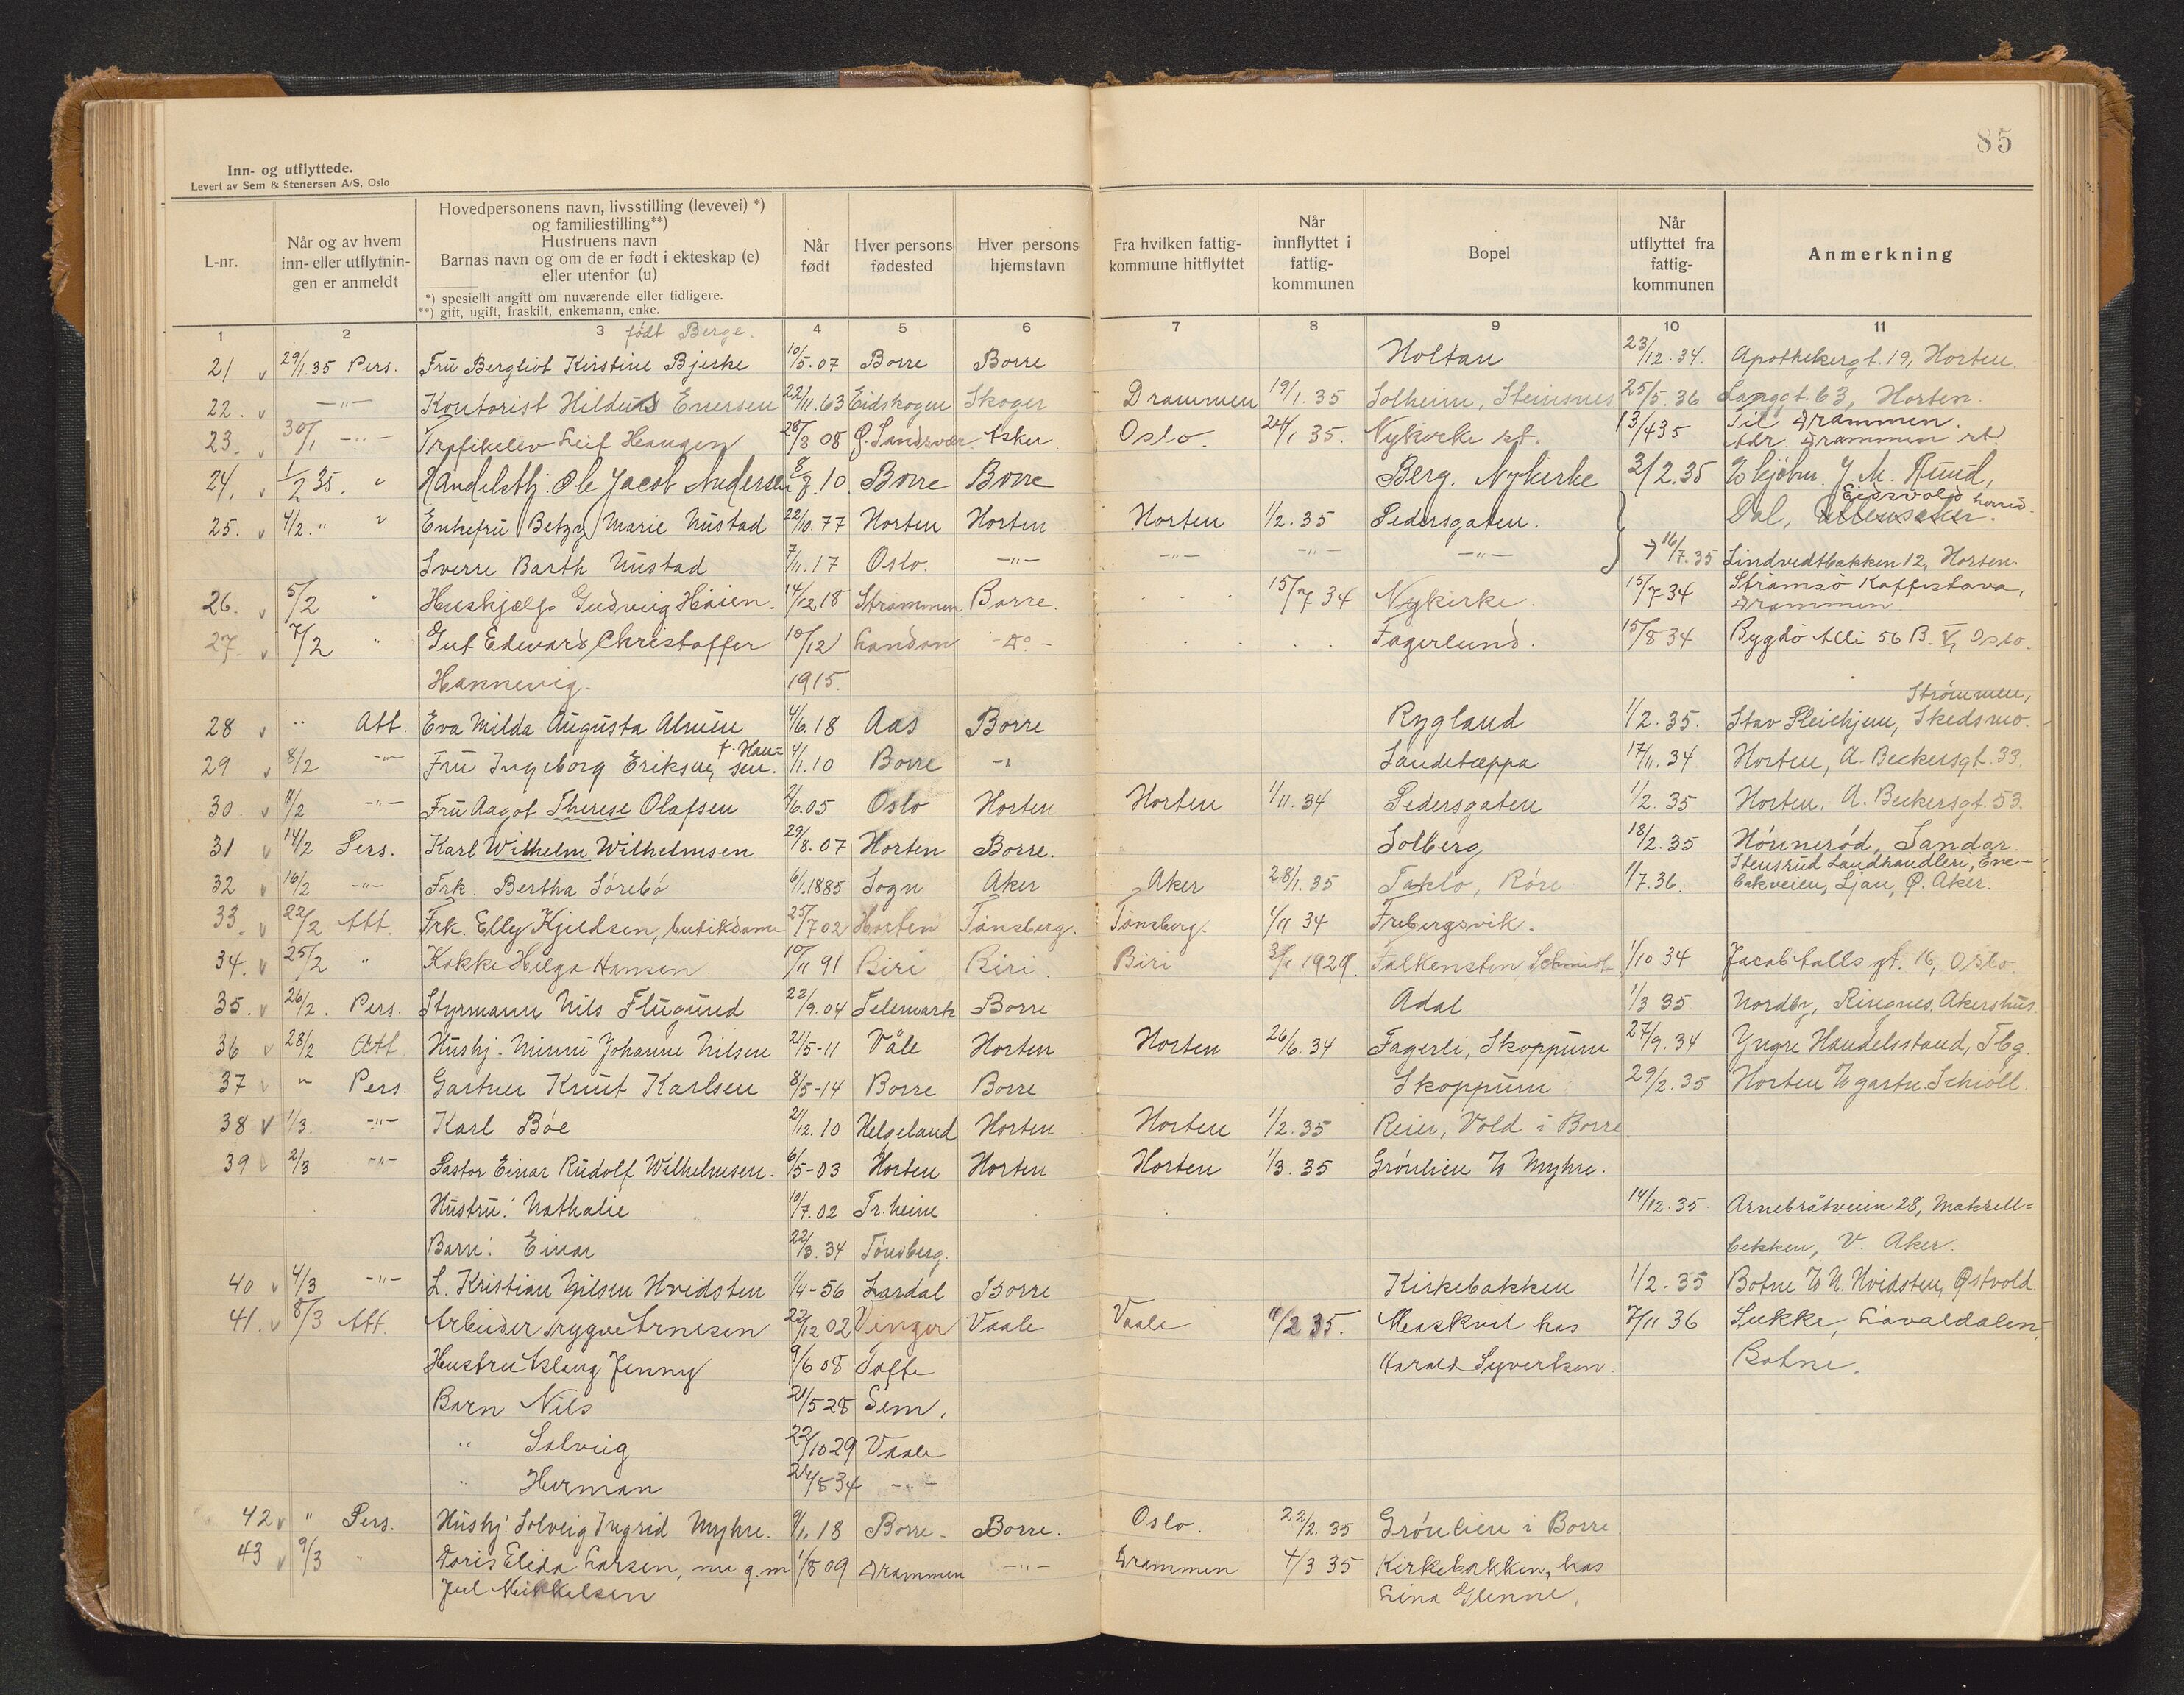 85
Inn- og utflyttede.
Levert av Sem & Stenersen A/S. Oslo.
L-nr. Når og av hvem inn- eller utflytnin-gen er anmeldt Hovedpersonens navn, livsstilling (levevei) *) og familiestilling**) Hustruens navn Barnas navn og om de er født i ekteskap (e) eller utenfor (u) Når født Hver persons fødested Hver persons hjemstavn Fra hvilken fattig-kommune hitflyttet Når innflyttet i fattig-kommunen Bopel Når utflyttet fra fattig-kommunen Anmerkning
*) spesiellt angitt om nuværende eller tidligere.
**) gift, ugift, fraskilt, enkemann, enke.
1 2 3 4 5 6 7 8 9 10 11
født Berge.
21 v 29/1.35 Pers. Fru Bergliot Kirstine Bjerke 10/5.07 Borre Borre Holtan 23/12.34. Apothekergt. 19, Horten.
22. v -"- Kontorist Enersen 22/11.63 Eidskogen Skoger Drammen 19/1.35 Solheim, Steinsnes 25/5.36 Langgt. 63, Horten.
Til Drammen.
23. v 30/1 -"- Trafikelev Leif Haugen 28/8 08 Ø. Sandsvær Asker Oslo. 24/1 35. Nykirke st. 13/4 35 Adr. Drammen st.
24. v 1/2 35. " Handelsbtj. Ole Jacob Andersen 8/8.10 Borre Borre Berg. Nykirke 3/2.35 J. M. Ruud,
Eidsvold herred.
25. v 4/2." " Enkefru Betzy Marie Nustad 22/10.77 Horten Horten Horten 1/2.35 Pedersgaten. Dal, Ullensaker.
Sverre Barth Nustad 7/11.17 Oslo. -"- -"- -"- -"- 16/7.35 Lindvedtbakken 12, Horten.
26. v 5/2 " Huskjælp Gudveig Håien. 14/12 18 Strømmen Borre. 15/7 34 Nykirke. 15/7 34 Strømsø Kaffistova,
Drammen
27. v 7/2 " Gut Edward Christoffer 10/12 London -Do- Fagerlund. 15/8 34 Bygdø Alle 56 B. V, Oslo.
Hannevig. 1915.
Strømmen,
28 v " Att. Eva Milda Augusta 4/6.18 Aas Borre Rygland 1/2.35. Skedsmo.
f. Han=
29 v 8/2 -"- Fru Ingeborg Eriksen, sen. 4/1.10 Borre -"- Sandetæppa 17/11.34 Horten, A. Beckersgt. 33.
30. v 11/2 -"- Fru Aagot Therese Olafsen 2/6.05 Oslo Horten Horten 1/11.34 Pedersgaten 1/2.35 Horten. A. Beckersgt. 53.
31 v 14/2 Pers. Karl Wilhelm Wilhelmsen 29/8.07 Horten Borre. Solberg 18/2.35 Hønnerød, Sandar.
Stensrud Landhandleri, Ene-
32 v 16/2 -"- Frk. Bertha Sørebø 6/1.1885 Sogn Aker Aker 28/1.35 Røre 1/7.36. bakveien, Ljan, Ø. Aker.
33. v 22/2 Att. Frk. Elly Kjeldsen, butikdame 25/7 02 Horten Tønsberg. Tønsberg. 1/11 34 Frebergsvik.
34. v 25/2 " Kokke Helga Hansen 10/11 91 Biri Biri. Biri 1929. Falkensten Schmidt 1/10 34 Jacob Aalls gt. 16, Oslo.
35. v 26/2. Pers. Styrmann Nils Flugund 22/9.04 Telemark Borre Adal 1/3 35 Nordby, Ringnes. Akershus.
36 v 28/2 Att. Hushj. Minni Johanne Nilsen 21/5-11 Våle Horten Horten 26/6.34 Fagerli, Skoppum 27/9.34 Yngre Handelsstand, Tbg.
37 v " Pers. Gartner Knut Karlsen 8/5-14 Borre Borre Skoppum 29/2.35 Horten
38 v 1/3. -"- Karl Bøe 2/12.10 Helgeland Horten Horten 1/2.35 Reier, Vold i Borre.
39 v 2/3 -"- Pastor Einar Rudolf Wilhelmsen. 6/5-03 Horten Horten Horten 1/3.35 Grønlien Myhre.
Hustru: Nathalie 10/7.02 Tr.heim 14/12.35. Arnebråtveien 28, Makrell=
Barn: Einar 22/3.34 Tønsberg. bekken, V. Aker.
40 v 4/3 -"- L. Kristian Nilsen Hvidsten 1/4-56 Lardal Borre Kirkebakken 1/2.35 Botne N. Hvidsten, Østvold.
41. v 8/3 Att. Arbeider Trygve Arnesen 22/12 02 Vinger Vaale Vaale 11/2 35. Measkvil hos 7/11 36 Sukke, Løvaldalen,
Hustru Aslaug Jenny 9/6 08 Tofte Harald Syvertsen. Botne.
Barn Nils 21/5 28 Sem.
" Solveig 22/10 29 Vaale
" Herman 24/8 34 -"-
42 v " Pers. Hushj. Solveig Ingrid Myhre. 9/1 18 Borre Borre. Oslo. 22/2.35 Grønlien i Borre
43 v 9/3 " Doris Elida Larsen, nu g.m. 1/8 09 Drammen -"- Drammen 4/3 35 Kirkebakken, hos
Jul Mikkelsen Lina Glenne.